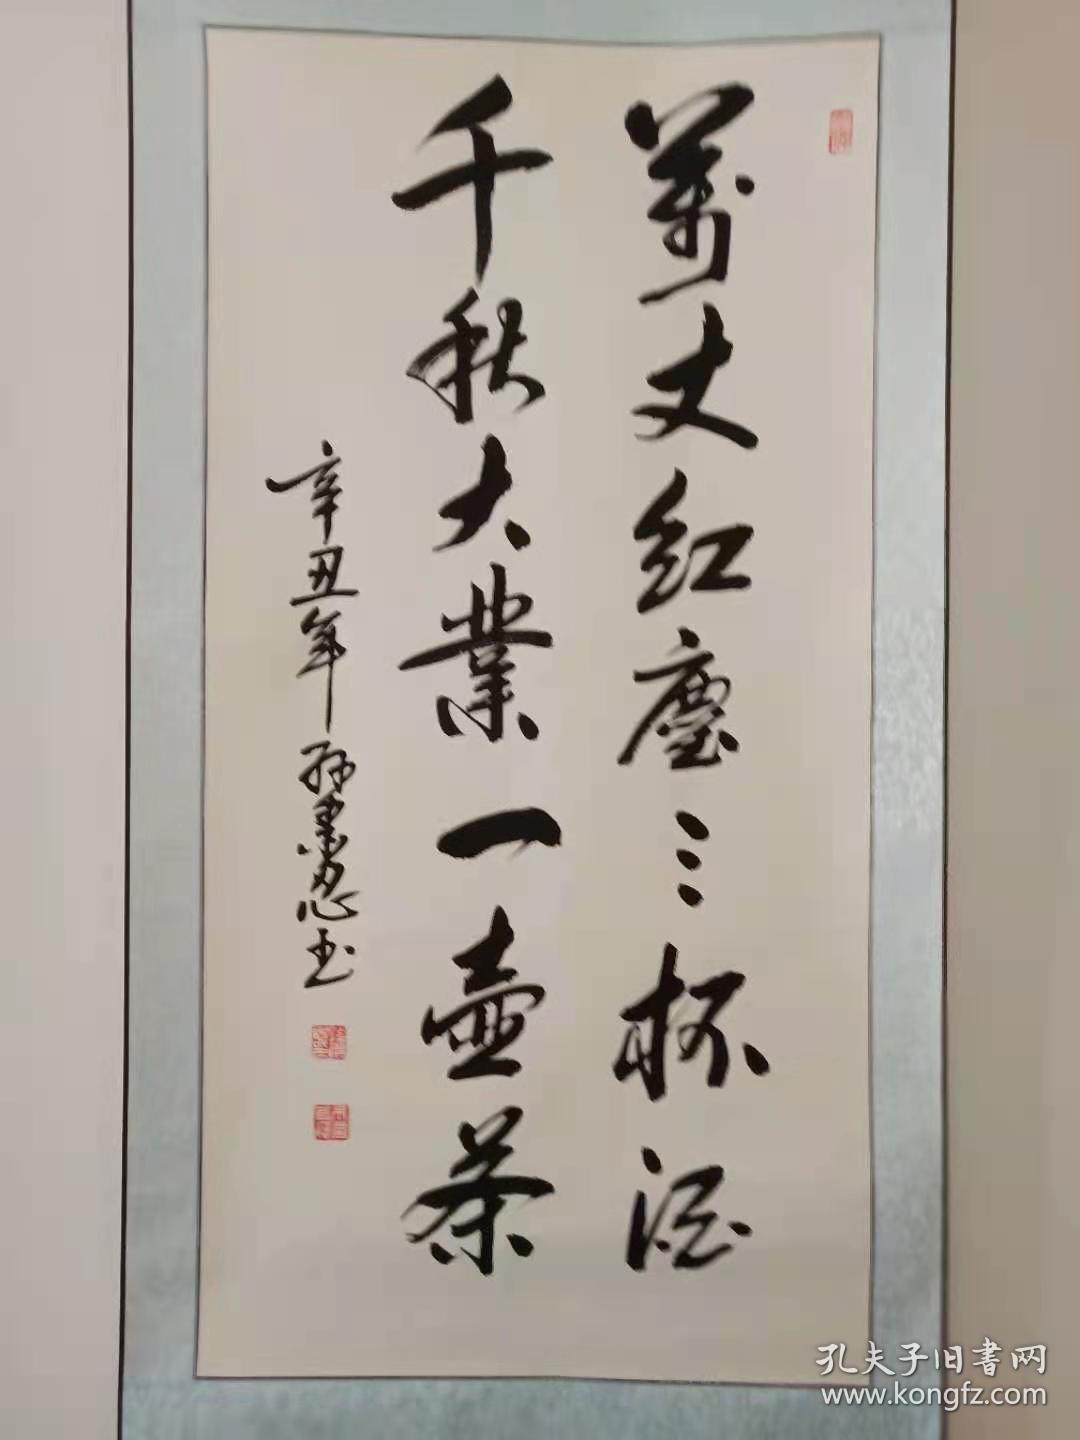 萬丈紅塵三杯酒
千秋大業一壺茶
辛丑年孫墨忍书
孔夫子旧書网
www.kongfz.com